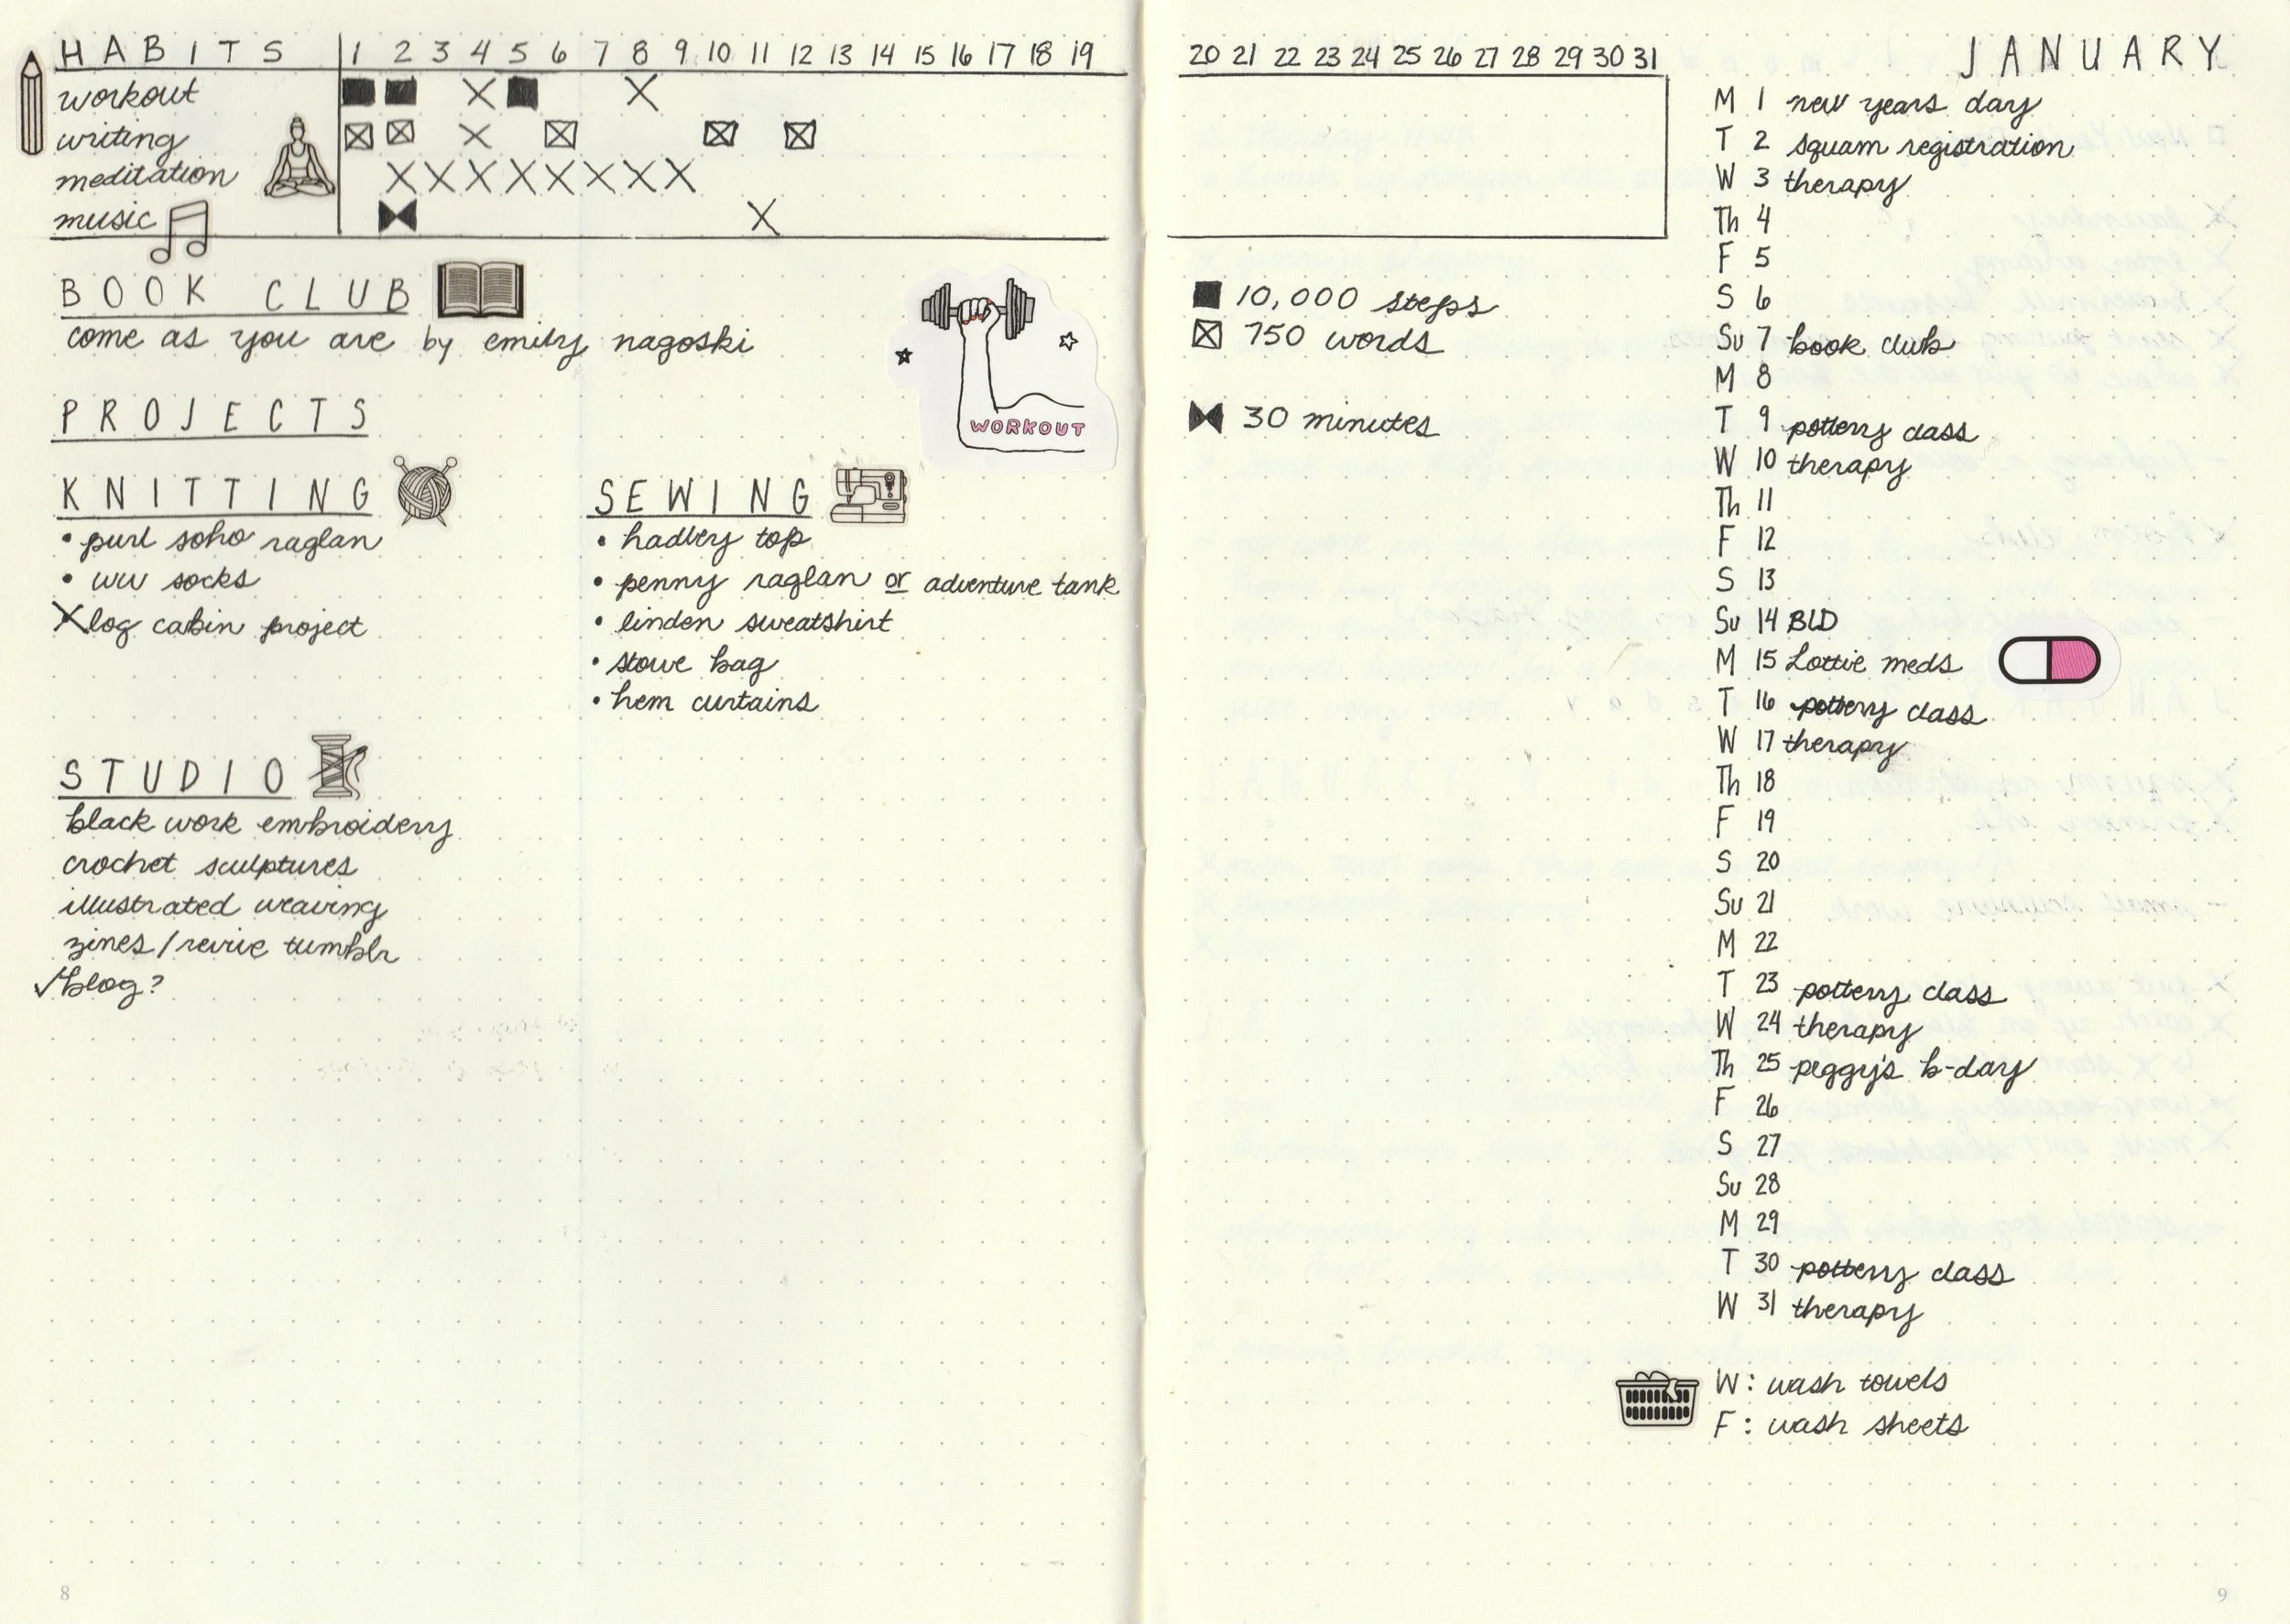 HABITS 1 2 3 4 5 6 7 8 9 10 11 12 13 14 15 16 17 18 19
workout
writing
meditation
music
BOOK CLUB
come as you are by emily nagoski
WORKOUT
PROJECTS
KNITTING
• purl soho raglan
• ww socks
X log cabin project
SEWING
• hadley top
• penny raglan or adventure tank
• linden sweatshirt
• stowe bag
• hem curtains
STUDIO
black work embroidery
crochet sculptures
illustrated weaving
zines/revive tumblr
✓blog?
8
20 21 22 23 24 25 26 27 28 29 30 31
10,000 steps
750 words
30 minutes
JANUARY
M 1 new years day
T 2 squam registration
W 3 therapy
Th 4
F 5
S 6
Su 7 book club
M 8
T 9 pottery class
W 10 therapy
Th 11
F 12
S 13
Su 14 BLD
M 15 Lottie meds
T 16 pottery class
W 17 therapy
Th 18
F 19
S 20
Su 21
M 22
T 23 pottery class
W 24 therapy
Th 25 peggy's b-day
F 26
S 27
Su 28
M 29
T 30 pottery class
W 31 therapy
W: wash towels
F: wash sheets
9